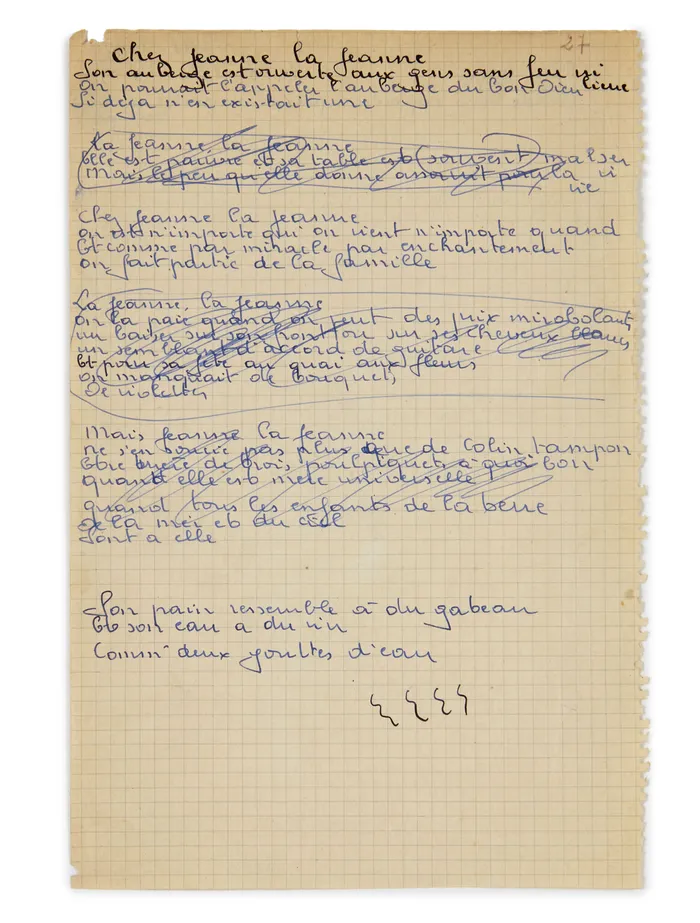 27
Chez Jeanne la Jeanne
Son auberge est ouverte aux gens sans feu ni lieu
on pourrait l'appeler l'auberge du bon Dieu
Si déja n'en existait une
La Jeanne la Jeanne
Elle est pauvre et sa table est (souvent) mal ser vie
Mais le peu qu'elle donne assouvit pour la vie
Chez Jeanne la Jeanne
on est n'importe qui on vient n'importe quand
Et comme par miracle par enchantement
on fait partie de la famille
La Jeanne, la Jeanne
on la paie quand on peut des prix mirobolants
un baiser sur son front ou sur ses cheveux blancs
un semblant d'accord de guitare
Et pour sa fête au quai aux fleurs
on manquait de bouquets
De violettes
Mais Jeanne la Jeanne
ne s'en soucie pas plus que de Colin tampon
Etre mère de trois, poulpiquets à quoi bon
quand elle est mère universelle
quand tous les enfants de la terre
De la mer et du ciel
Sont à elle
Son pain ressemble à du gateau
Et son eau a du vin
Comm' deux gouttes d'eau